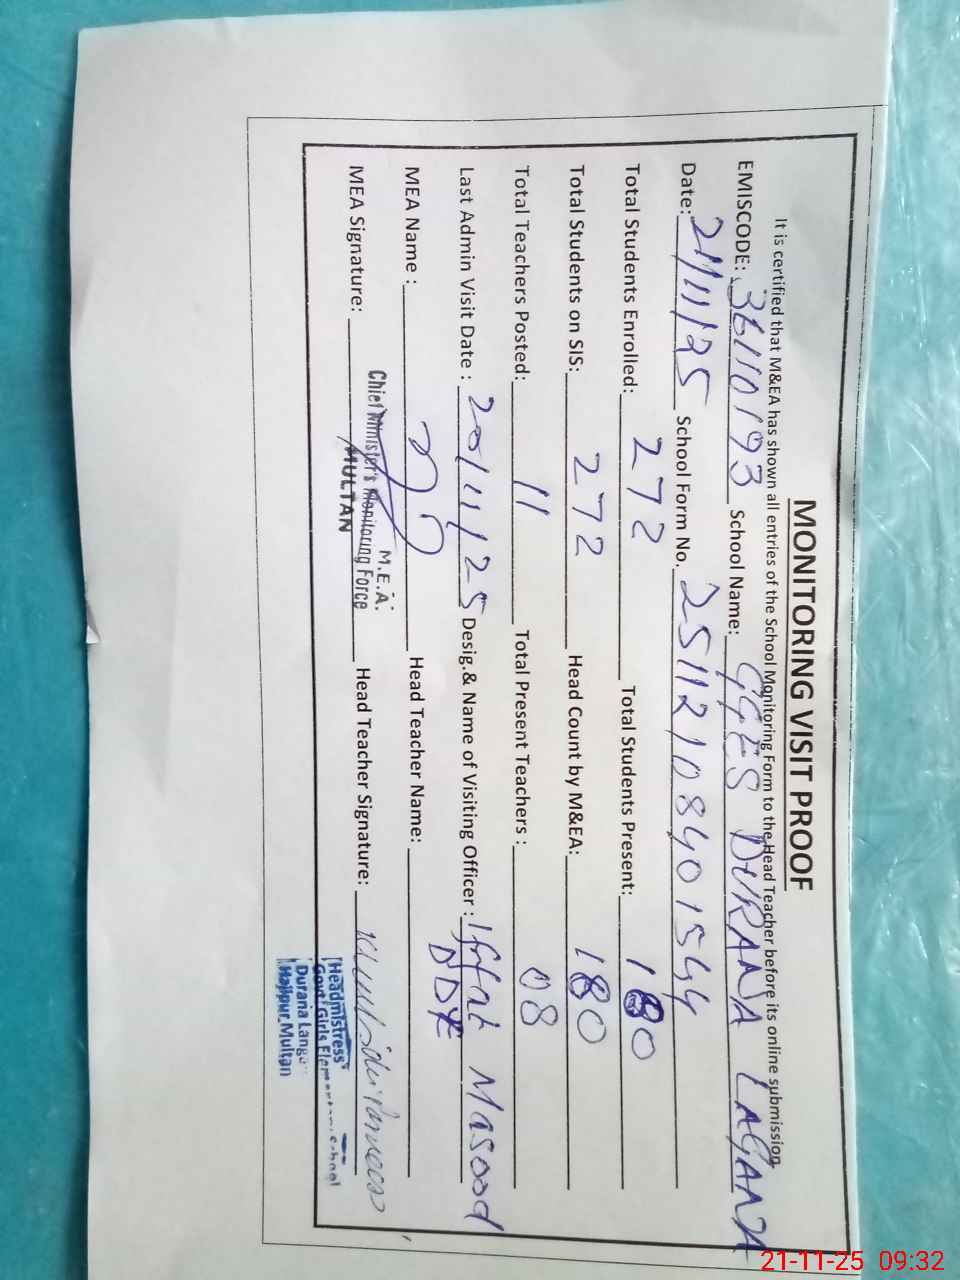 MONITORING VISIT PROOF
It is certified that M&EA has shown all entries of the School Monitoring Form to the Head Teacher before its online submission
EMISCODE: 36110193 School Name: GGES DURANA LAGANA
Date: 21/11/25 School Form No. 25112108401544
Total Students Enrolled: 272 Total Students Present: 180
Total Students on SIS: 272 Head Count by M&EA: 180
Total Teachers Posted: 11 Total Present Teachers : 08
Last Admin Visit Date : 20/11/25 Desig.& Name of Visiting Officer : Iffat Masood
MEA Name : Head Teacher Name:
MEA Signature: Head Teacher Signature:
M.E.A.
Chief Minister's Monitoring Force
MULTAN
Headmistress
Govt. Girls Elementary School
Durana Lang
Hajipur, Multan
21-11-25 09:32